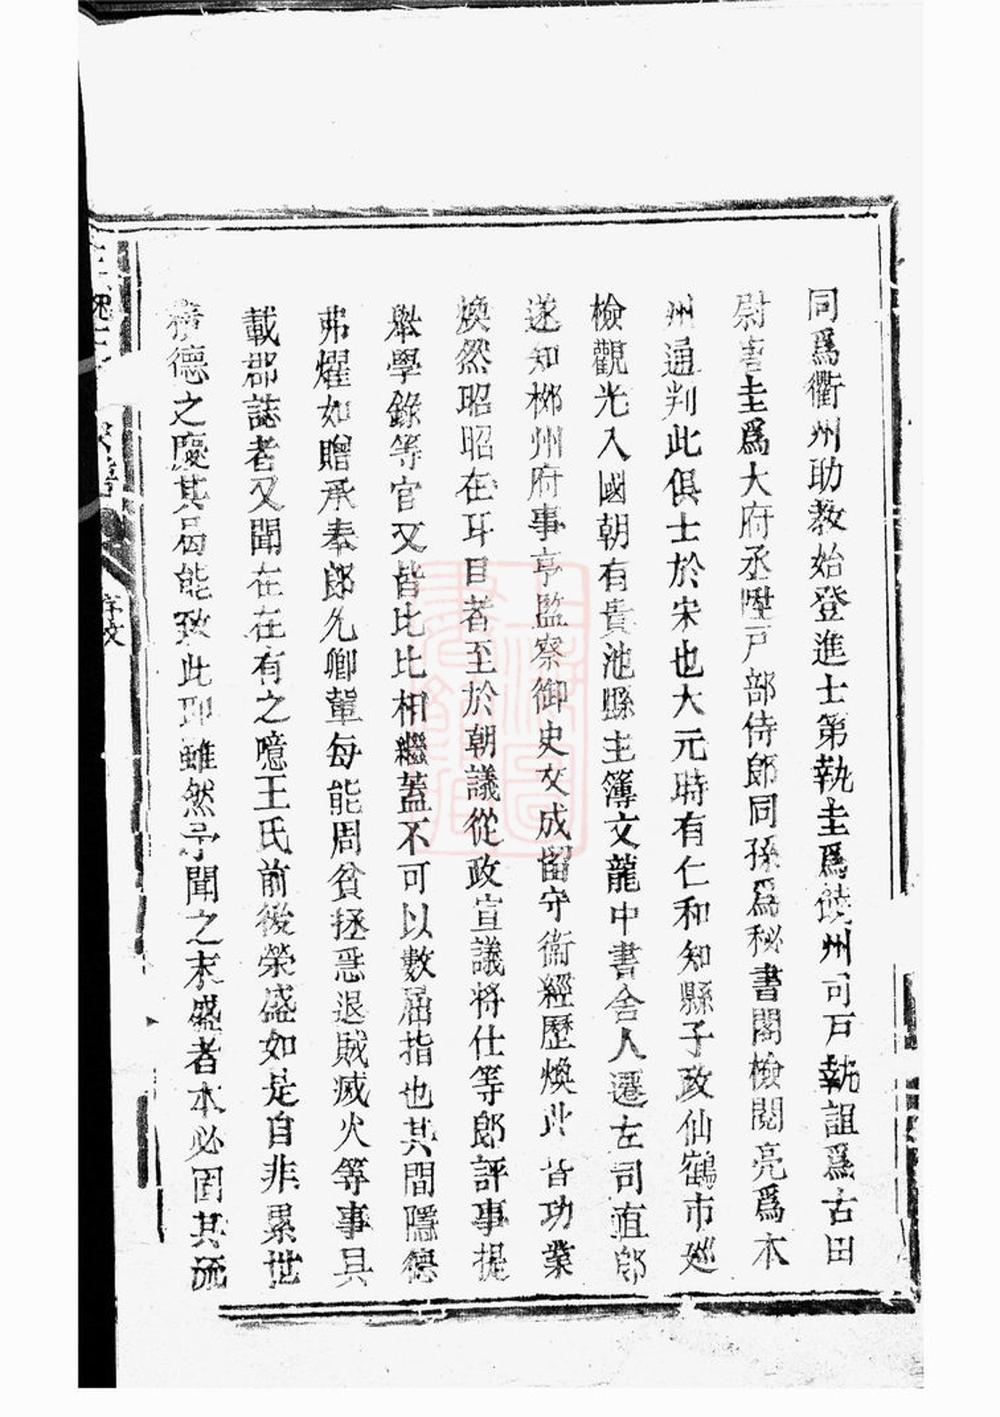 同爲衢州助教始登進士第執圭爲饒州司戸執誼爲古田
尉唐圭爲大府丞陞戸部侍郎同孫爲秘書閣檢閱亮爲本
州通判此俱士於宋也大元時有仁和知縣子政仙鶴市巡
檢觀光入國朝有貴池縣主簿文龍中書舍人遷左司直郎
遂知栁州府事亨監察御史文成留守衞經歷煥此皆功業
煥然昭昭在耳目者至於朝議從政宣議將仕等郎評事提
舉學錄等官又皆比比相繼蓋不可以數屈指也其間隱德
弗燿如贈承奉郎允卿輩每能周貧拯惡退賊滅火等事具
載郡誌者又聞在在有之噫王氏前後榮盛如是自非累世
積德之慶其曷能致此耶雖然予聞之末盛者本必固其流
序文